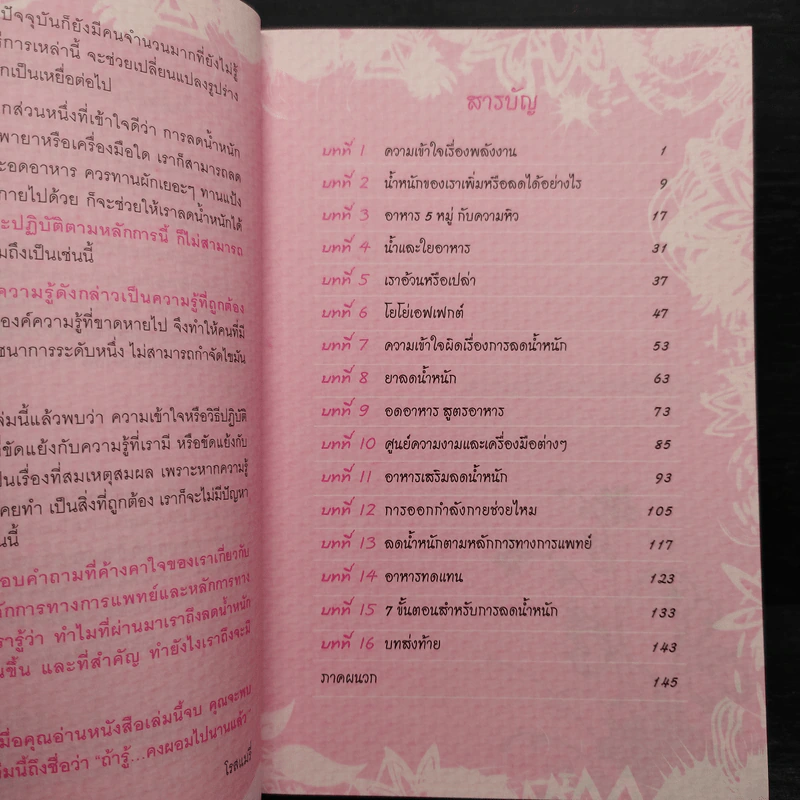 ปัจจุบันก็ยังมีคนจำนวนมากที่ยังไม่รู้
การเหล่านี้ จะช่วยเปลี่ยนแปลงรูปร่าง
เป็นเหยื่อต่อไป
ส่วนหนึ่งที่เข้าใจดีว่า การลดน้ำหนัก
พายาหรือเครื่องมือใด เราก็สามารถลด
อดอาหาร ควรทานผักเยอะๆ ทานแป้ง
กายไปด้วย ก็จะช่วยให้เราลดน้ำหนักได้
ปฏิบัติตามหลักการนี้ ก็ไม่สามารถ
ถึงเป็นเช่นนี้
ความรู้ดังกล่าวเป็นความรู้ที่ถูกต้อง
องค์ความรู้ที่ขาดหายไป จึงทำให้คนที่มี
นาการระดับหนึ่ง ไม่สามารถกำจัดไขมัน
นี้แล้วพบว่า ความเข้าใจหรือวิธีปฏิบัติ
ขัดแย้งกับความรู้ที่เรามี หรือขัดแย้งกับ
เป็นเรื่องที่สมเหตุสมผล เพราะหากความรู้
เคยทำ เป็นสิ่งที่ถูกต้อง เราก็จะไม่มีปัญหา
นี้
อบคำถามที่ค้างคาใจของเราเกี่ยวกับ
หลักการทางการแพทย์และหลักการทาง
รารู้ว่า ทำไมที่ผ่านมาเราถึงลดน้ำหนัก
ขึ้น และที่สำคัญ ทำยังไงเราถึงจะมี
มื่อคุณอ่านหนังสือเล่มนี้จบ คุณจะพบ
มนี้ถึงชื่อว่า "ถ้ารู้...คงผอมไปนานแล้ว"
โรสแมรี่
สารบัญ
บทที่ 1 ความเข้าใจเรื่องพลังงาน 1
บทที่ 2 น้ำหนักของเราเพิ่มหรือลดได้อย่างไร 9
บทที่ 3 อาหาร 5 หมู่ กับความหิว 17
บทที่ 4 น้ำและใยอาหาร 31
บทที่ 5 เราอ้วนหรือเปล่า 37
บทที่ 6 โยโย่เอฟเฟกต์ 47
บทที่ 7 ความเข้าใจผิดเรื่องการลดน้ำหนัก 53
บทที่ 8 ยาลดน้ำหนัก 63
บทที่ 9 อดอาหาร สูตรอาหาร 73
บทที่ 10 ศูนย์ความงามและเครื่องมือต่างๆ 85
บทที่ 11 อาหารเสริมลดน้ำหนัก 93
บทที่ 12 การออกกำลังกายช่วยไหม 105
บทที่ 13 ลดน้ำหนักตามหลักการทางการแพทย์ 117
บทที่ 14 อาหารทดแทน 123
บทที่ 15 7 ขั้นตอนสำหรับการลดน้ำหนัก 133
บทที่ 16 บทส่งท้าย 143
ภาคผนวก 145